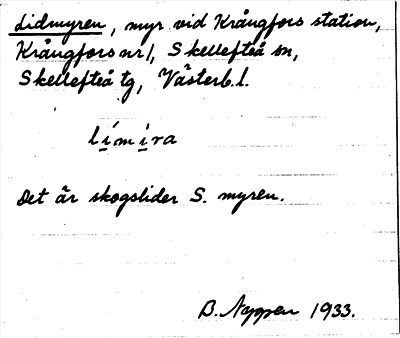 Lidmyren, myr vid Krångfors station,
Krångfors nr 1, Skellefteå sn,
Skellefteå tg, Västerb. l.
límịra
Det är skogslider S. myren.
B. Nyppen 1933.